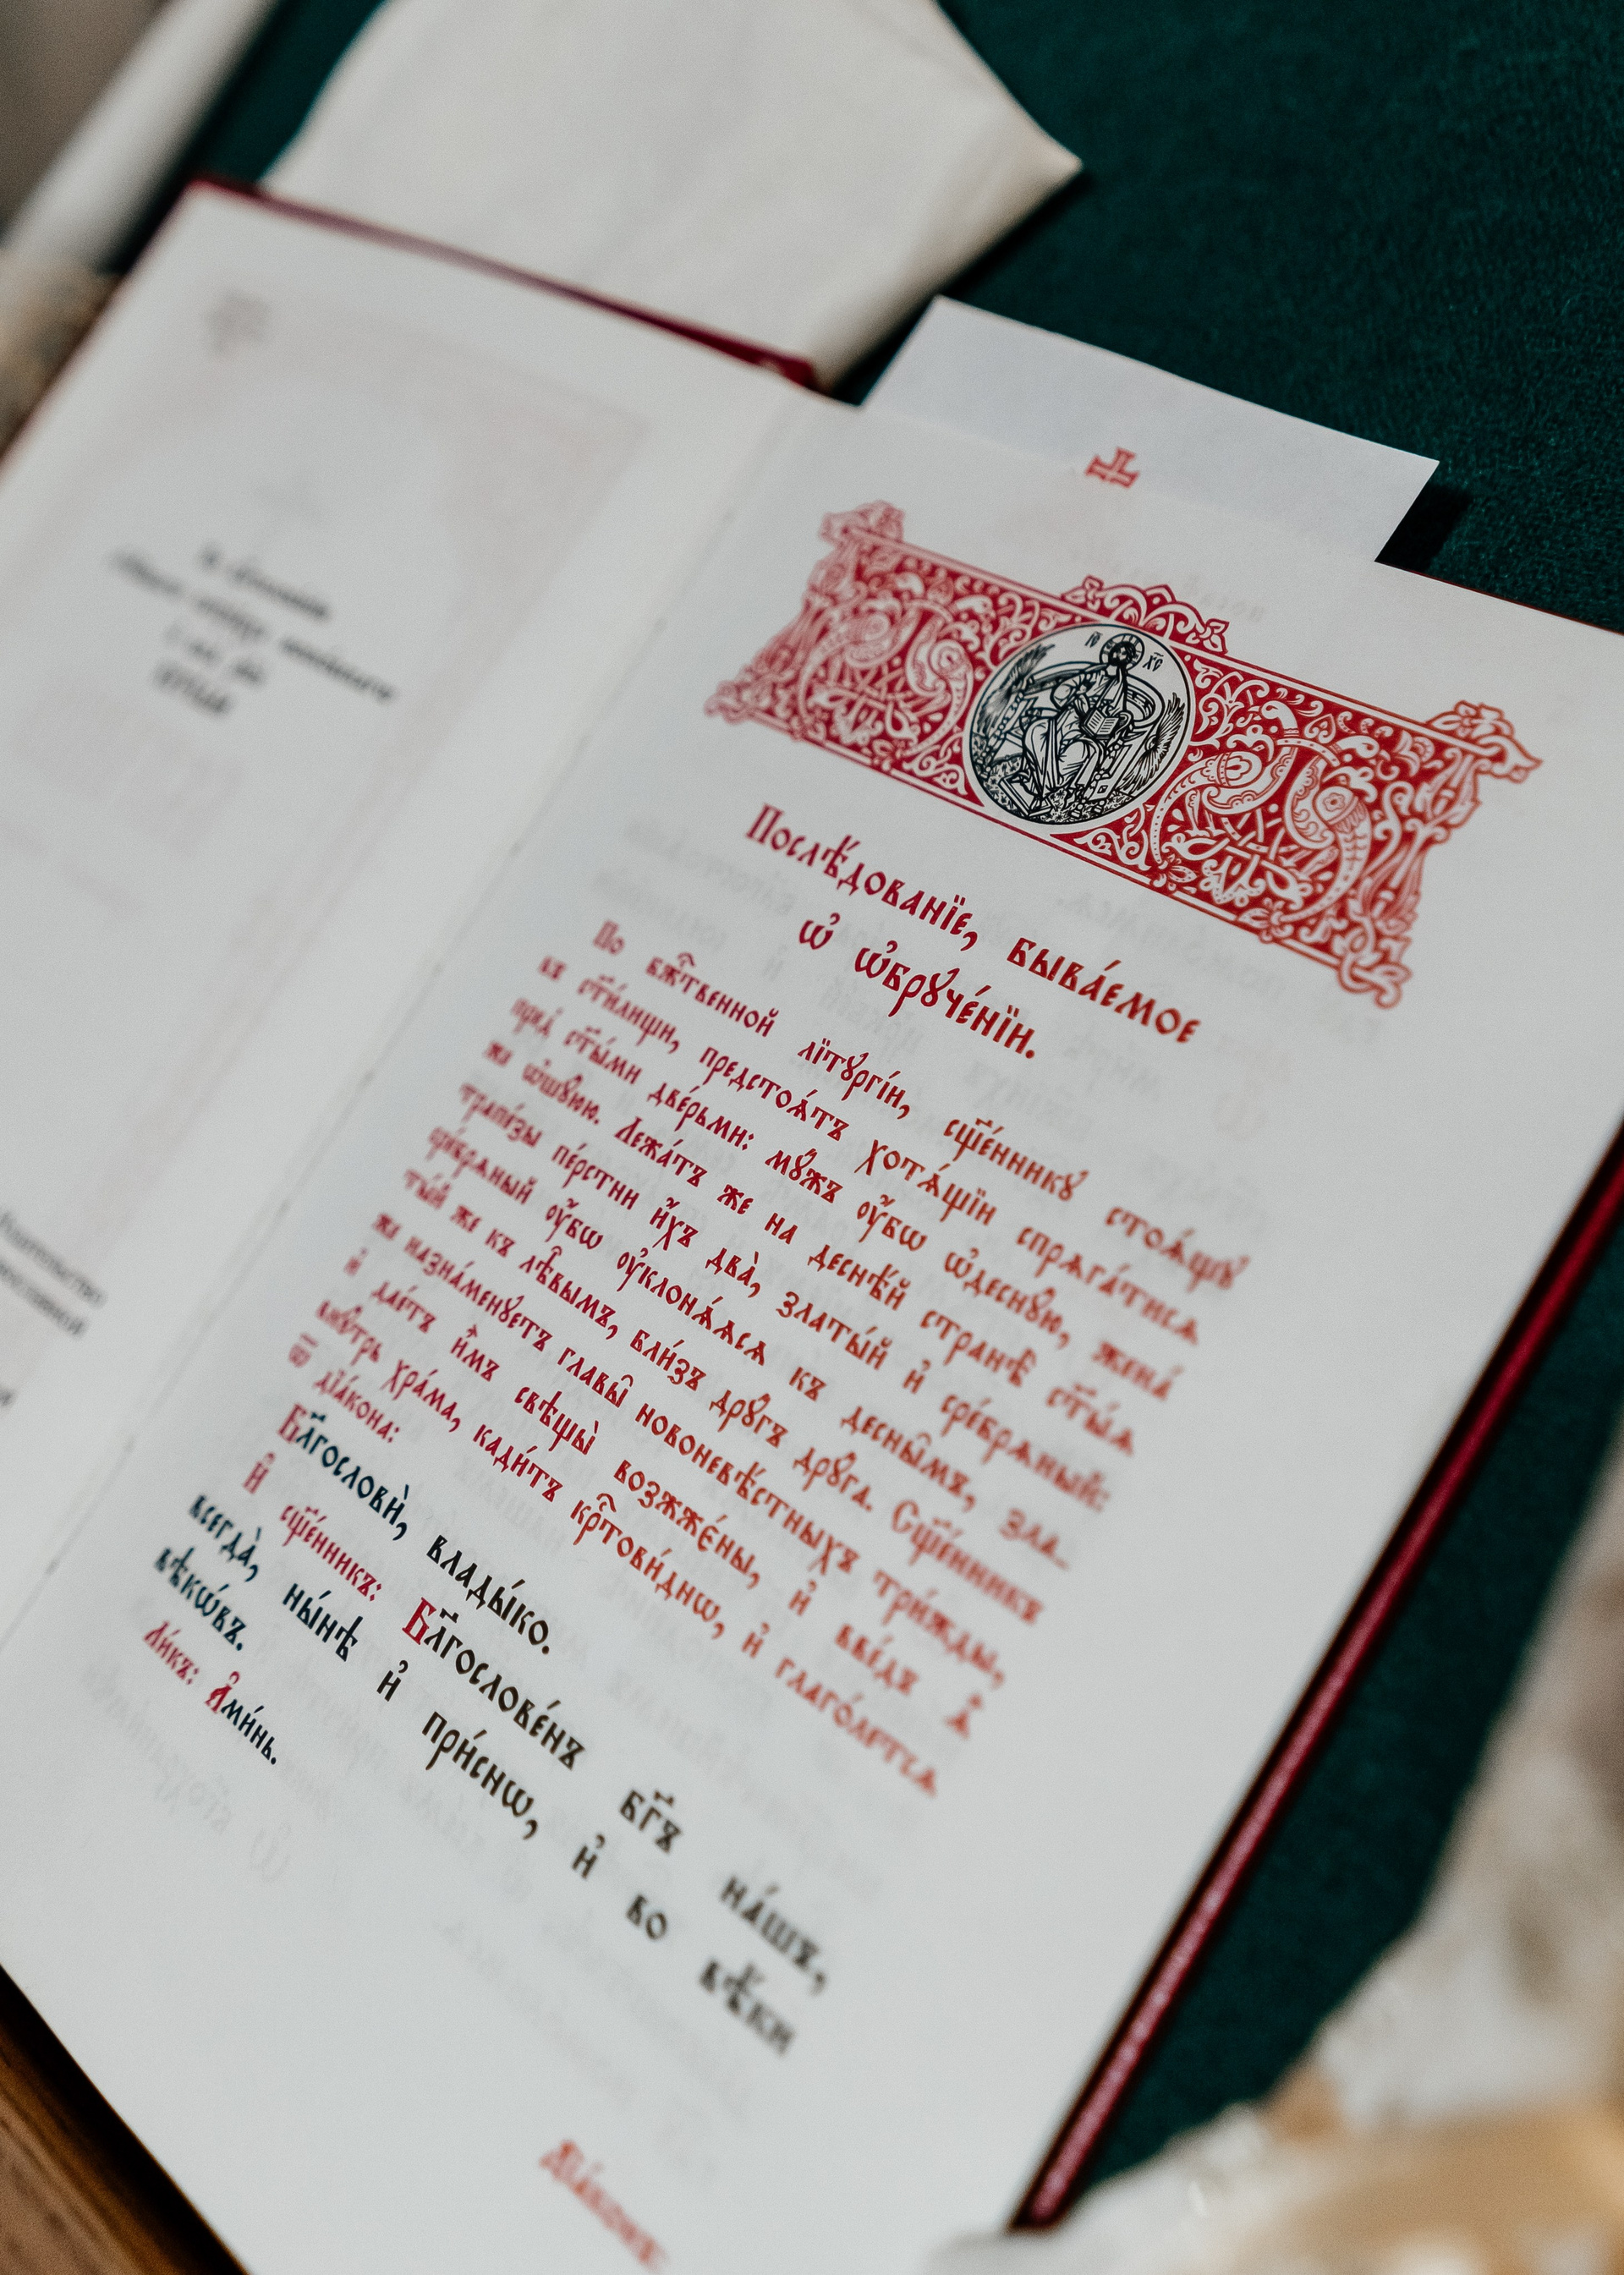 І҃С Х҃С
Послѣ́дованїе, быва́емое
ѡ҆ ѡ҆брꙋче́нїи.
По бж҃твенной лїтꙋргі́и, сщ҃е́нникꙋ стоѧ́щꙋ
въ ст҃и́лищи, предстоѧ́тъ хотѧ́щїи спрѧга́тисѧ
пред̾ ст҃ы́ми две́рьми: мꙋ́жъ ᲂу҆́бѡ ѡ҆деснꙋ́ю, жена́
же ѡ҆шꙋ́юю. Лежа́тъ же на деснѣ́й странѣ̀ ст҃ы́ѧ
трапе́зы пе́рстни и҆́хъ два̀, златы́й и҆ сре́брѧный:
сре́брѧный ᲂу҆́бѡ ᲂу҆клонѧ́ѧсѧ къ десны̑мъ, зла-
ты́й же къ лѣ̑вымъ, бли́зъ дрꙋ́гъ дрꙋ́га. Сщ҃е́нникъ
же назна́менꙋетъ главы̑ новоневѣ́стныхъ три́жды,
и҆ дае́тъ и҆̀мъ свѣщы̀ возжже́ны, и҆ вве́дъ ѧ҆̀
внꙋ́трь хра́ма, кади́тъ крⷭ҇тови́днѡ, и҆ глаго́летсѧ
ѿ дїа́кона:
Бл҃гословѝ, влады́ко.
И҆ сщ҃е́нникъ: Бл҃гослове́нъ бг҃ъ на́шъ,
всегда̀, ны́нѣ и҆ при́снѡ, и҆ во вѣ́ки
вѣкѡ́въ.
Ли́къ: А҆ми́нь.